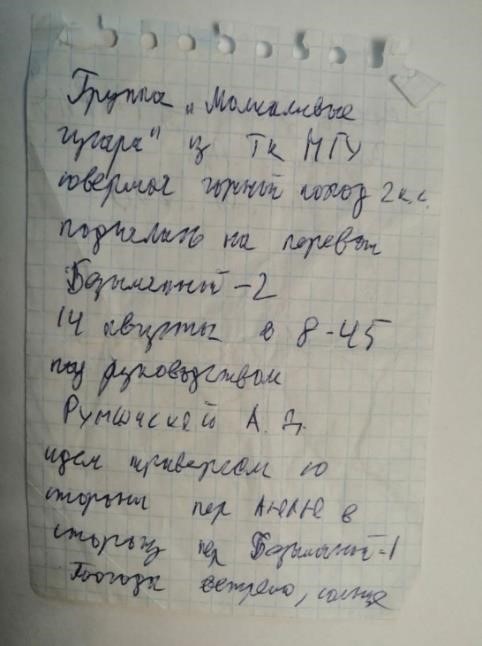 Группа „Молчаливые
гусары" из ТК МГУ
совершая горный поход 2 к.с.
поднялись на перевал
Безымянный-2
14 августа в 8-45
под руководством
А. Д.
идем траверсом со
стороны пер в
сторону пер Безымянный-1
Погода ветрено, солнце